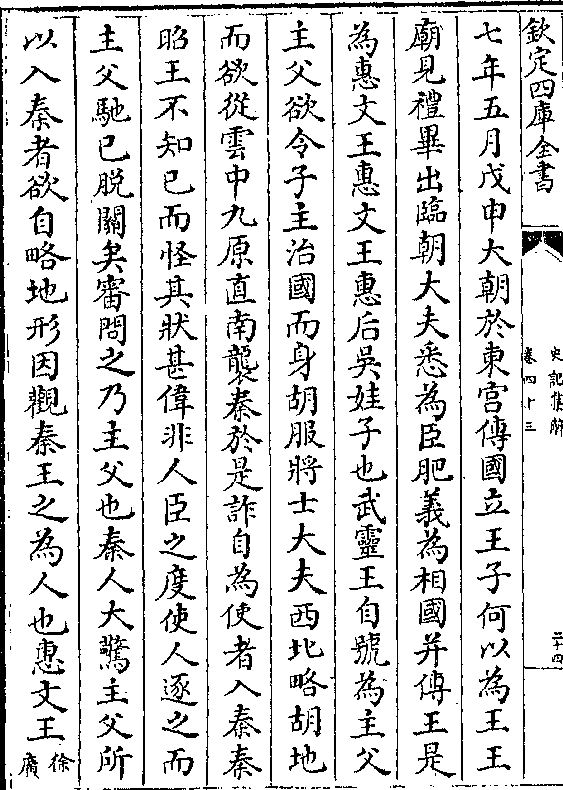 欽定四庫全書
史記集解
卷四十三
二十四
七年五月戊申大朝於東宮傳國立王子何以為王王
廟見禮畢出臨朝大夫悉為臣肥義為相國并傅王是
為惠文王惠文王惠后吳娃子也武靈王自號為主父
主父欲令子主治國而身胡服將士大夫西北略胡地
而欲從雲中九原直南襲秦於是詐自為使者入秦秦
昭王不知已而怪其狀甚偉非人臣之度使人逐之而
主父馳已脫關矣審問之乃主父也秦人大驚主父所
以入秦者欲自略地形因觀秦王之為人也惠文王徐
廣